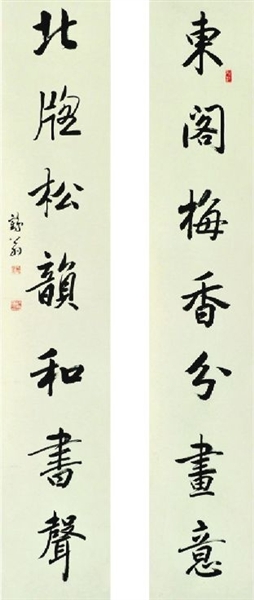 東閣梅香分畫意
北牕松韻和書聲